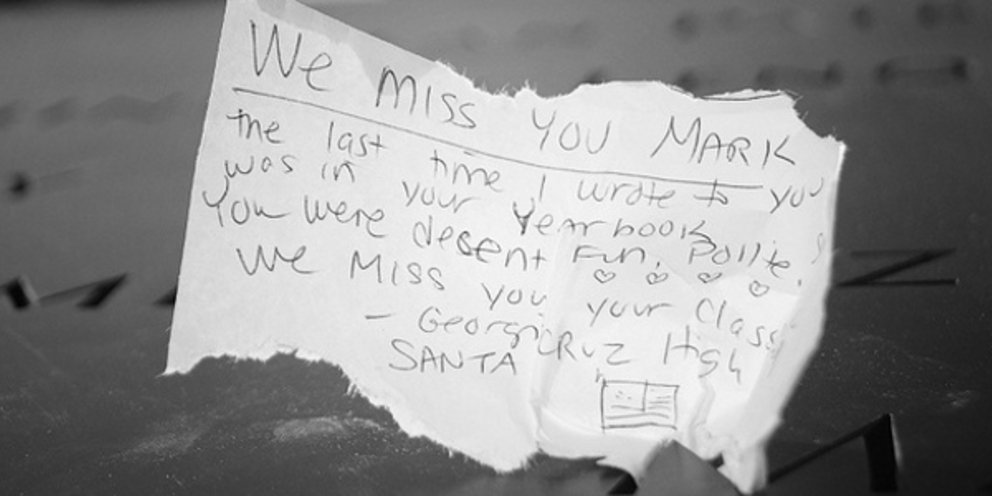 We MISS YOU MARK
the last time I wrote to you
was in your Yearbook
You were desent Fun, Polite,
We MISS you your Class
- Georgi
SANTA CRUZ High